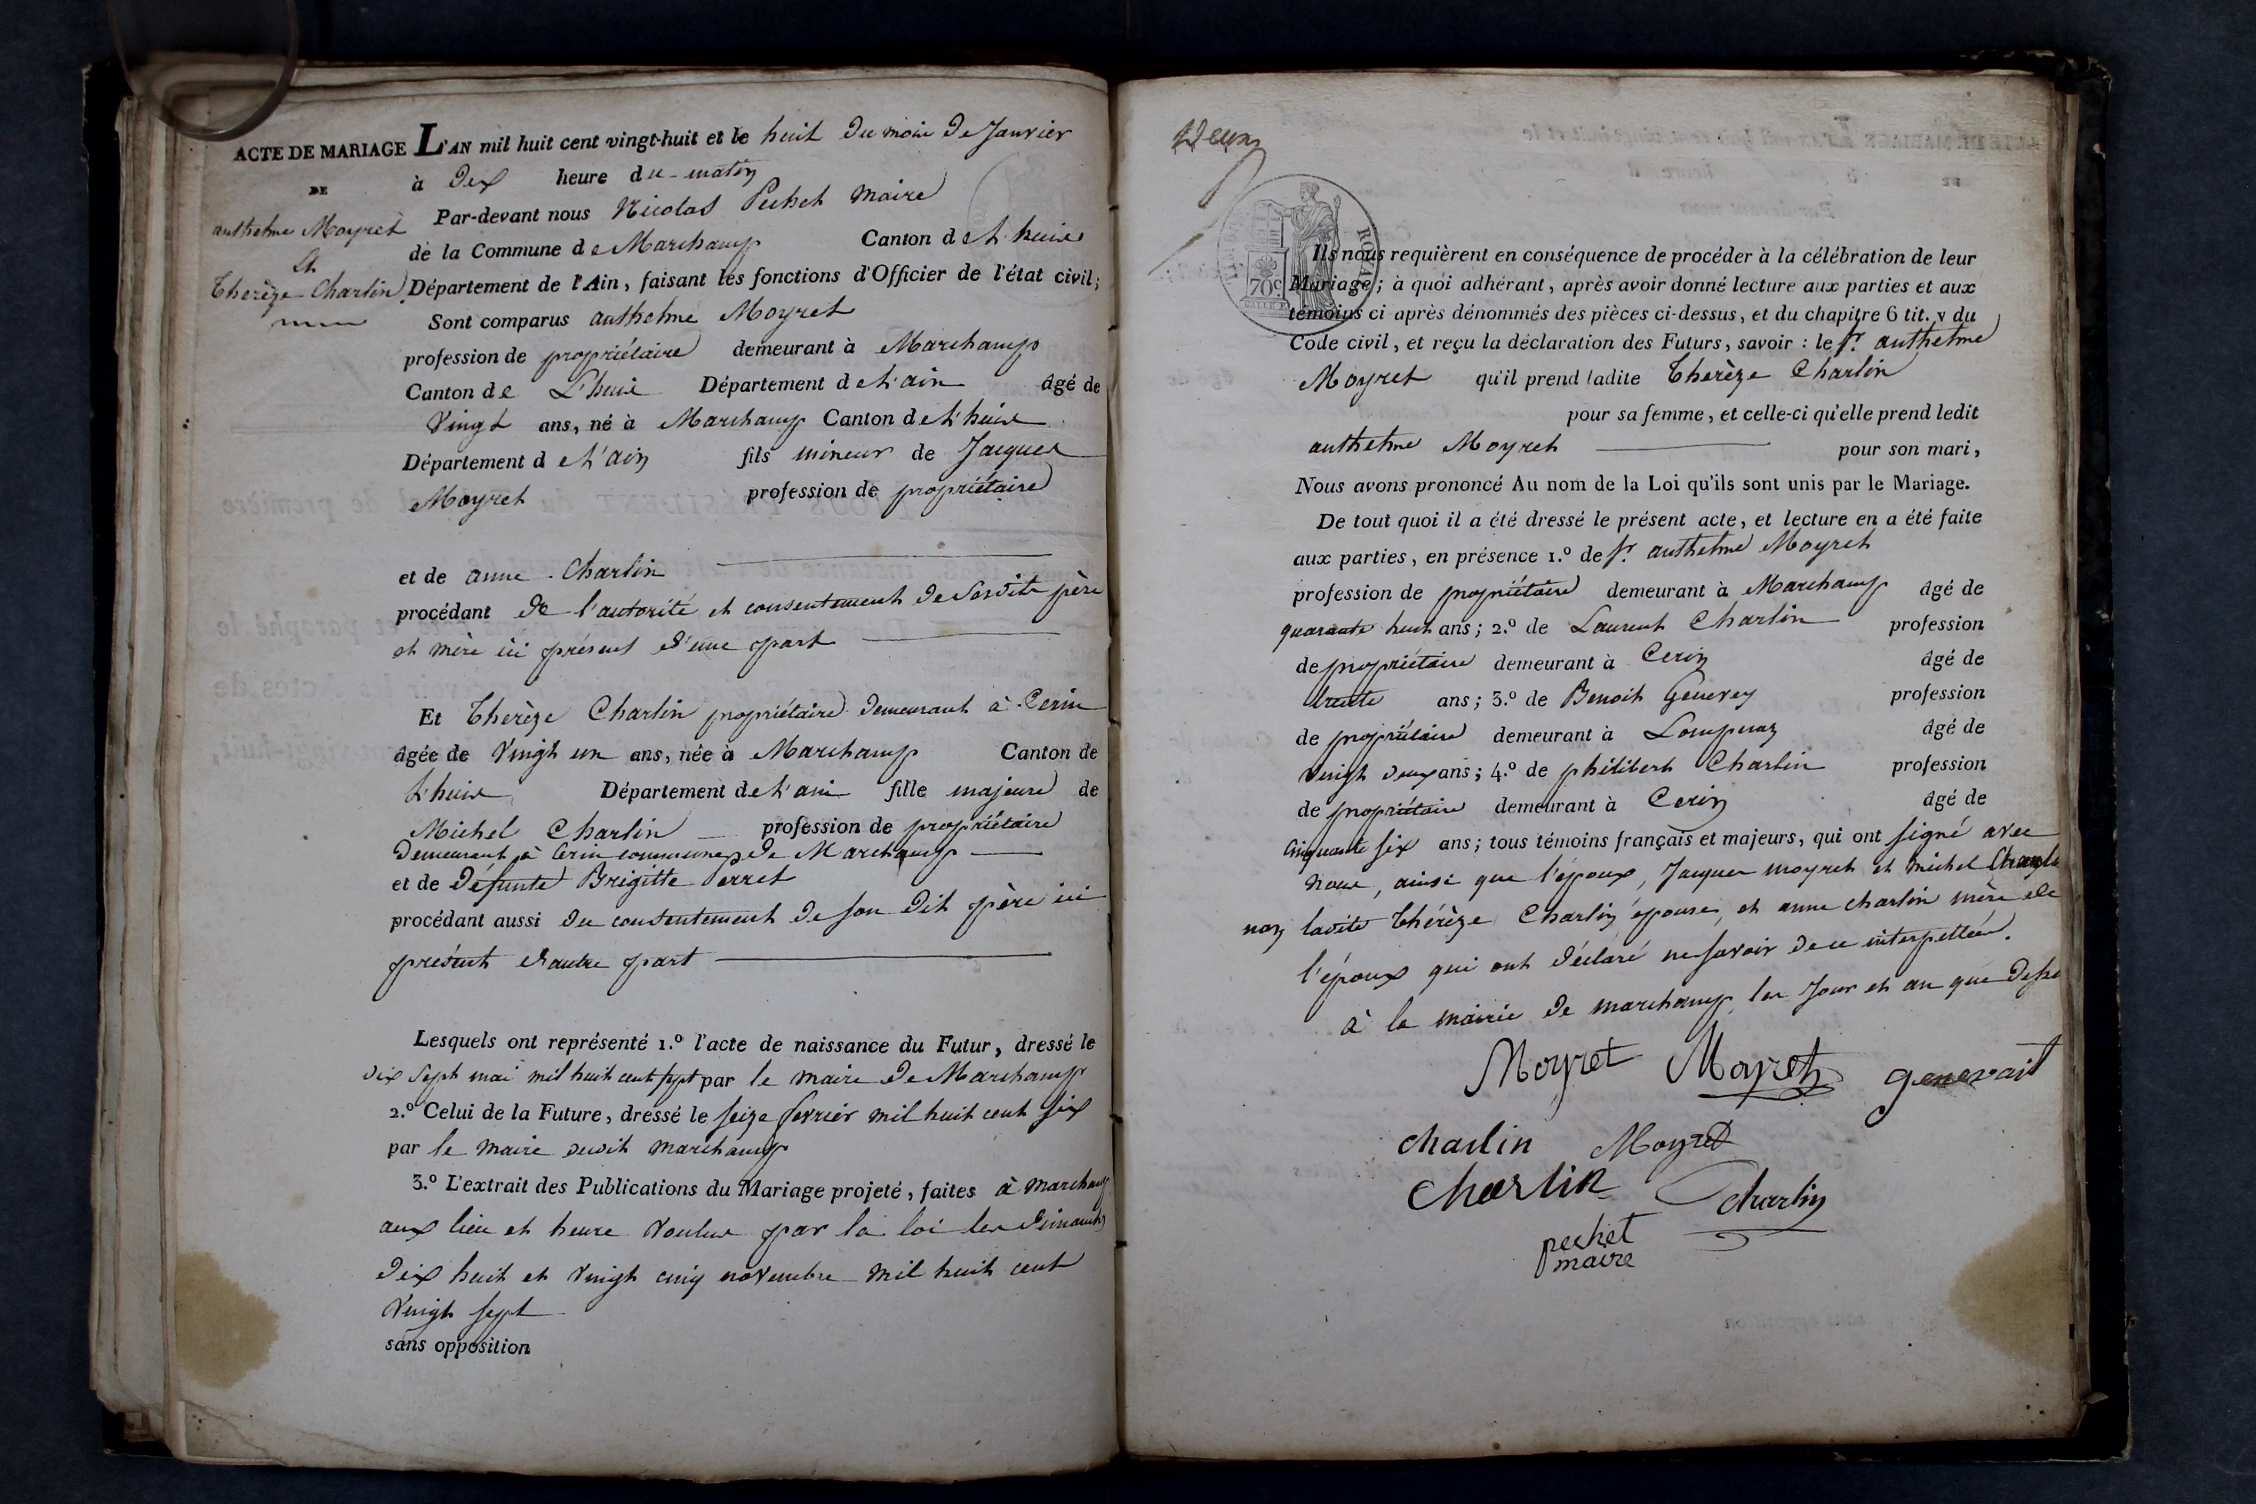 ACTE DE MARIAGE L'AN mil huit cent vingt-huit et le huit du mois de Janvier
DE
anthelme Moyret
Et
Therèze Charlin
à dix heure du matin
Par-devant nous Nicolas Pechet Maire
de la Commune de Marchamp Canton de L'huis
Département de l'Ain, faisant les fonctions d'Officier de l'état civil;
Sont comparus anthelme Moyret
profession de propriétaire demeurant à Marchamp
Canton de L'huis Département de L'ain âgé de
Vingt ans, né à Marchamp Canton de L'huis
Département de L'ain fils mineur de Jacques
Moyret profession de propriétaire
et de anne Charlin
procédant de l'autorité et consentement de sesdits père
et mère ici présents d'une part
Et Therèze Charlin propriétaire demeurant à Cerin
âgée de Vingt un ans, née à Marchamp Canton de
L'huis Département de L'ain fille majeure de
Michel Charlin profession de propriétaire
demeurant à Cerin commune de Marchamp
et de défunte Brigitte Perret
procédant aussi du consentement de son dit père ici
présent d'autre part
Lesquels ont représenté 1.º l'acte de naissance du Futur, dressé le
dix sept mai mil huit cent sept par le maire de Marchamp
2.º Celui de la Future, dressé le seize fevrier mil huit cent six
par le maire dudit marchamp
3.º L'extrait des Publications du Mariage projeté, faites à marchamp
aux lieu et heure voulus par la loi les dimanches
dix huit et vingt cinq novembre mil huit cent
Vingt sept
sans opposition
deux
ROYAL
70 c
Ils nous requièrent en conséquence de procéder à la célébration de leur
Mariage; à quoi adhérant, après avoir donné lecture aux parties et aux
témoins ci après dénommés des pièces ci-dessus, et du chapitre 6 tit. v du
Code civil, et reçu la déclaration des Futurs, savoir : le sr. anthelme
Moyret qu'il prend ladite Therèze Charlin
pour sa femme, et celle-ci qu'elle prend ledit
anthelme Moyret pour son mari,
Nous avons prononcé Au nom de la Loi qu'ils sont unis par le Mariage.
De tout quoi il a été dressé le présent acte, et lecture en a été faite
aux parties, en présence 1.º de sr. anthelme Moyret
profession de propriétaire demeurant à Marchamp âgé de
quarante huit ans; 2.º de Laurent Charlin profession
de propriétaire demeurant à Cerin âgé de
trente ans; 3.º de Benoit Genevey profession
de propriétaire demeurant à Lompnaz âgé de
vingt deux ans; 4.º de philibert Charlin profession
de propriétaire demeurant à Cerin âgé de
cinquante six ans; tous témoins français et majeurs, qui ont signé avec
nous, ainsi que l'époux, Jacques moyret et michel Charlin
non ladite Thérèze Charlin épouse, et anne charlin mère de
l'époux qui ont déclaré ne savoir de ce interpellées.
à la mairie de marchamp les jour et an que dessus
Moyret Moyret genevait
charlin Moyret
charlin charlin
pechet
maire